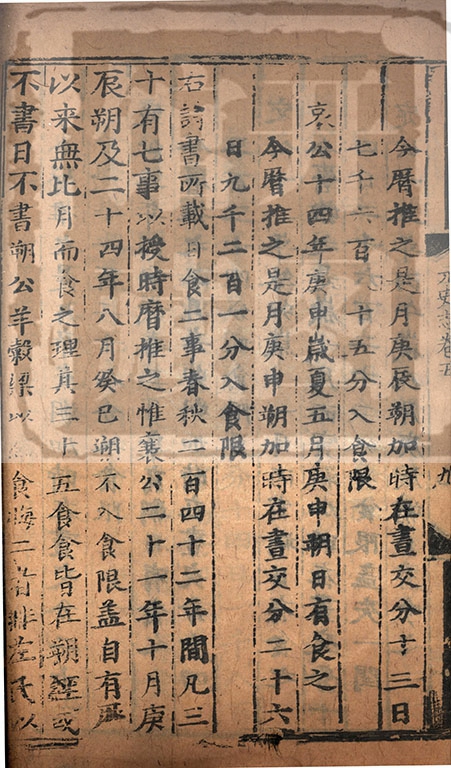 今曆推之是月庚辰朔加時在晝交分十三日
七千六百一十五分入食限
哀公十四年庚申歲夏五月庚申朔日有食之
今曆推之是月庚申朔加時在晝交分二十六
日九千二百一分入食限
右詩書所載日食二事春秋二百四十二年間凡三
十有七事以授時曆推之惟襄公二十一年十月庚
辰朔及二十四年八月癸巳朔不入食限葢自有曆
以来無比月而食之理其三十五食食皆在朔經或
不書日不書朔公羊穀梁以食晦二者非左氏以
元史志卷五
九